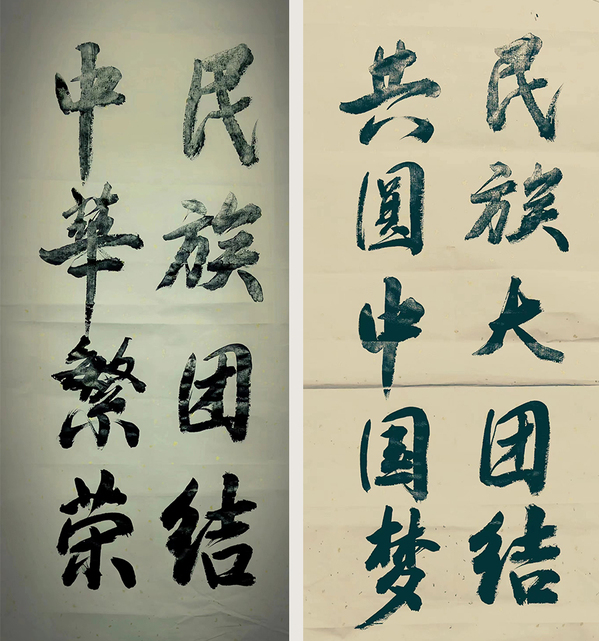 民族团结
中華繁荣
民族大团结
共圆中国梦